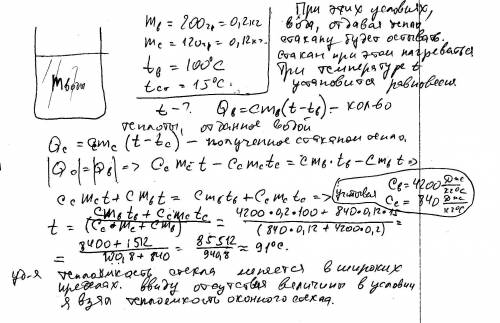 mводы
mв = 200гр = 0,2кг
mс = 120гр = 0,12кг.
tв = 100°С
tст = 15°С.
При этих условиях,
вода, отдавая тепло
стакану будет остывать.
стакан при этом нагреваться
При температуре t
установится равновесия
t - ? Qв = cmв(t - tв) - кол-во
теплоты, отданное водой
Qс = cmс (t - tс) - полученное стаканом тепло.
|Qс| = |Qв| => Cс mс t - Cс mс tс = Cmв · tв - Cmв t =>
Cс mс t + Cmв t = Cmв tв + Cс mс tс =>
учитывая Cв = 4200 Дж/кг°С
Cс = 840 Дж/кг°С
t = Cmв tв + Cс mс tс / (Cс · mс + Cmв) = 4200 · 0,2 · 100 + 840 · 0,12 · 15 / (840 · 0,12 + 4200 · 0,2) =
= 84000 + 1512 / 100,8 + 840 = 85512 / 940,8 ≈ 91°С.
уд-я теплоёмкость стекла меняется в широких
пределах. ввиду отсутствия величины в условии
я взял теплоемкость оконного стекла.